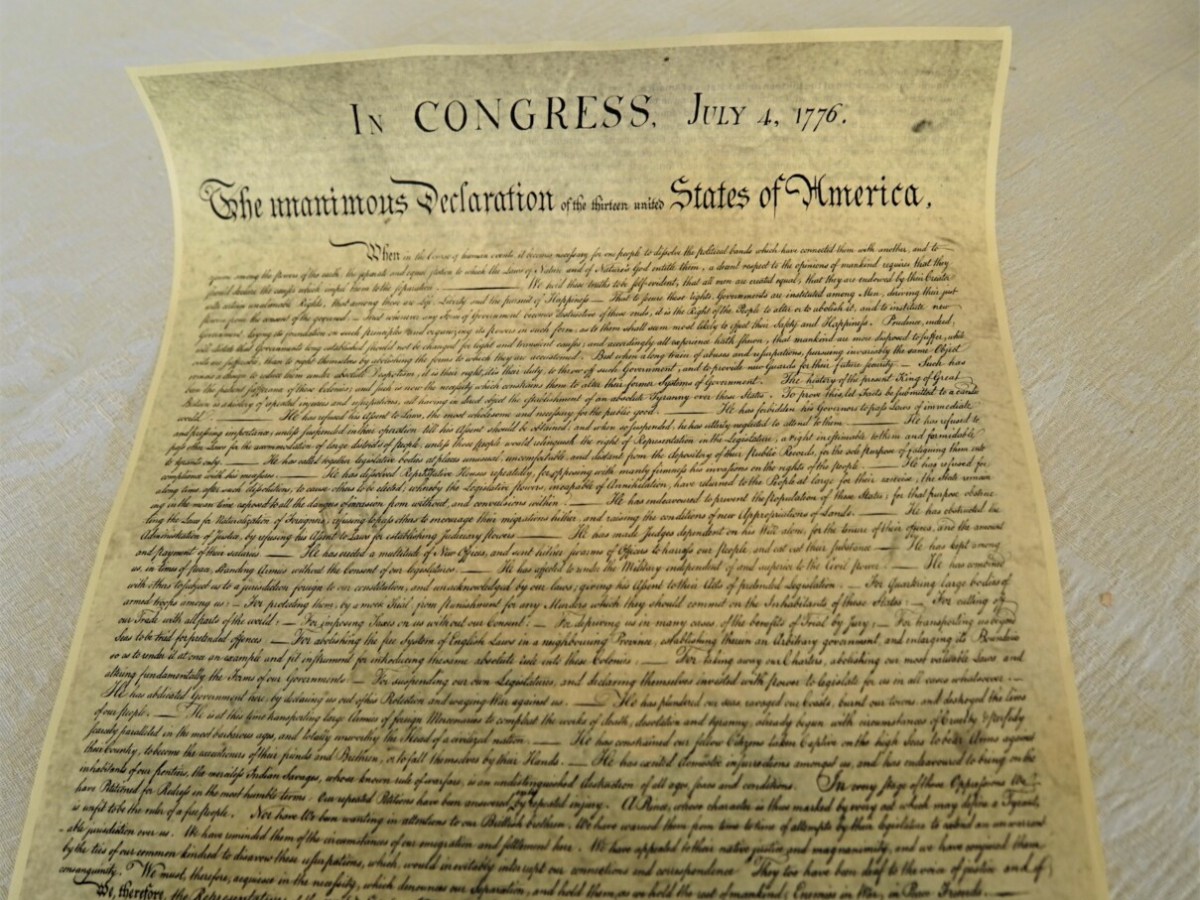 In CONGRESS, July 4, 1776.
The unanimous Declaration of the thirteen united States of America,
When in the Course of human events, it becomes necessary for one people to dissolve the political bands which have connected them with another, and to
among the powers of the earth, the separate and equal station to which the Laws of Nature and of Nature's God entitle them, a decent respect to the opinions of mankind requires that they
should declare the causes which impel them to the separation. ——— We hold these truths to be self-evident, that all men are created equal, that they are endowed by their Creator
with certain unalienable Rights, that among these are Life, Liberty and the pursuit of Happiness. — That to secure these rights, Governments are instituted among Men, deriving their just
powers from the consent of the governed, — That whenever any Form of Government becomes destructive of these ends, it is the Right of the People to alter or to abolish it, and to institute new
Government, laying its foundation on such principles and organizing its powers in such form, as to them shall seem most likely to effect their Safety and Happiness. Prudence, indeed,
will dictate that Governments long established should not be changed for light and transient causes; and accordingly all experience hath shewn, that mankind are more disposed to suffer, while
evils are sufferable, than to right themselves by abolishing the forms to which they are accustomed. But when a long train of abuses and usurpations, pursuing invariably the same Object
evinces a design to reduce them under absolute Despotism, it is their right, it is their duty, to throw off such Government, and to provide new Guards for their future security. — Such has
been the patient sufferance of these Colonies; and such is now the necessity which constrains them to alter their former Systems of Government. The history of the present King of Great
Britain is a history of repeated injuries and usurpations, all having in direct object the establishment of an absolute Tyranny over these States. To prove this, let Facts be submitted to a candid
world. ——— He has refused his Assent to Laws, the most wholesome and necessary for the public good. ——— He has forbidden his Governors to pass Laws of immediate
and pressing importance, unless suspended in their operation till his Assent should be obtained; and when so suspended, he has utterly neglected to attend to them. ——— He has refused to
pass other Laws for the accommodation of large districts of people, unless those people would relinquish the right of Representation in the Legislature, a right inestimable to them and formidable
to tyrants only. ——— He has called together legislative bodies at places unusual, uncomfortable, and distant from the depository of their Public Records, for the sole purpose of fatiguing them into
compliance with his measures. ——— He has dissolved Representative Houses repeatedly, for opposing with manly firmness his invasions on the rights of the people. ——— He has refused for
a long time, after such dissolutions, to cause others to be elected; whereby the Legislative powers, incapable of Annihilation, have returned to the People at large for their exercise; the State remain
ing in the mean time exposed to all the dangers of invasion from without, and convulsions within. ——— He has endeavoured to prevent the population of these States; for that purpose obstruc
ting the Laws for Naturalization of Foreigners; refusing to pass others to encourage their migrations hither, and raising the conditions of new Appropriations of Lands. ——— He has obstructed the
Administration of Justice, by refusing his Assent to Laws for establishing Judiciary powers. ——— He has made Judges dependent on his Will alone, for the tenure of their offices, and the amount
and payment of their salaries. ——— He has erected a multitude of New Offices, and sent hither swarms of Officers to harrass our people, and eat out their substance. ——— He has kept among
us, in times of peace, Standing Armies without the Consent of our legislatures. ——— He has affected to render the Military independent of and superior to the Civil power. ——— He has combined
with others to subject us to a jurisdiction foreign to our constitution, and unacknowledged by our laws; giving his Assent to their Acts of pretended Legislation: — For Quartering large bodies of
armed troops among us: — For protecting them, by a mock Trial, from punishment for any Murders which they should commit on the Inhabitants of these States: — For cutting off
our Trade with all parts of the world: — For imposing Taxes on us without our Consent: — For depriving us in many cases, of the benefits of Trial by Jury: — For transporting us beyond
Seas to be tried for pretended offences — For abolishing the free System of English Laws in a neighbouring Province, establishing therein an Arbitrary government, and enlarging its Boundaries
so as to render it at once an example and fit instrument for introducing the same absolute rule into these Colonies: — For taking away our Charters, abolishing our most valuable Laws, and
altering fundamentally the Forms of our Governments: — For suspending our own Legislatures, and declaring themselves invested with power to legislate for us in all cases whatsoever. —
He has abdicated Government here, by declaring us out of his Protection and waging War against us. — He has plundered our seas, ravaged our Coasts, burnt our towns, and destroyed the lives
of our people. — He is at this time transporting large Armies of foreign Mercenaries to compleat the works of death, desolation and tyranny, already begun with circumstances of Cruelty & perfidy
scarcely paralleled in the most barbarous ages, and totally unworthy the Head of a civilized nation. — He has constrained our fellow Citizens taken Captive on the high Seas to bear Arms against
their Country, to become the executioners of their friends and Brethren, or to fall themselves by their Hands. — He has excited domestic insurrections amongst us, and has endeavoured to bring on the
inhabitants of our frontiers, the merciless Indian Savages, whose known rule of warfare, is an undistinguished destruction of all ages, sexes and conditions. In every stage of these Oppressions We
have Petitioned for Redress in the most humble terms: Our repeated Petitions have been answered by repeated injury. A Prince, whose character is thus marked by every act which may define a Tyrant,
is unfit to be the ruler of a free people. Nor have We been wanting in attentions to our Brittish brethren. We have warned them from time to time of attempts by their legislature to extend an unwarrant
able jurisdiction over us. We have reminded them of the circumstances of our emigration and settlement here. We have appealed to their native justice and magnanimity, and we have conjured them
by the ties of our common kindred to disavow these usurpations, which, would inevitably interrupt our connections and correspondence. They too have been deaf to the voice of justice and of
consanguinity. We must, therefore, acquiesce in the necessity, which denounces our Separation, and hold them, as we hold the rest of mankind, Enemies in War, in Peace Friends. —
We, therefore, the Representatives